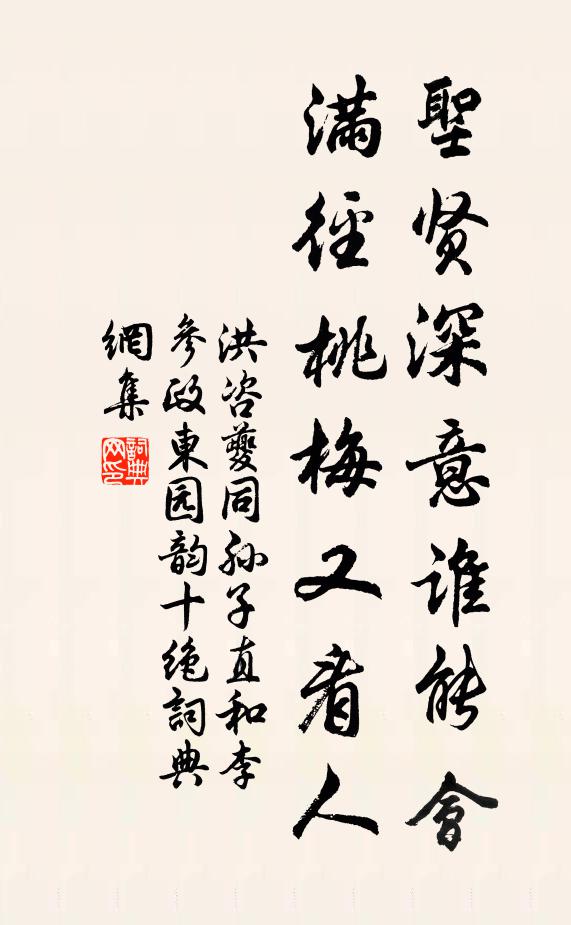 聖贤深意誰能會
满徑桃梅又看人
洪咨夔同孙子直和李
參政東园韵十绝詞典
網集
詞典
网印